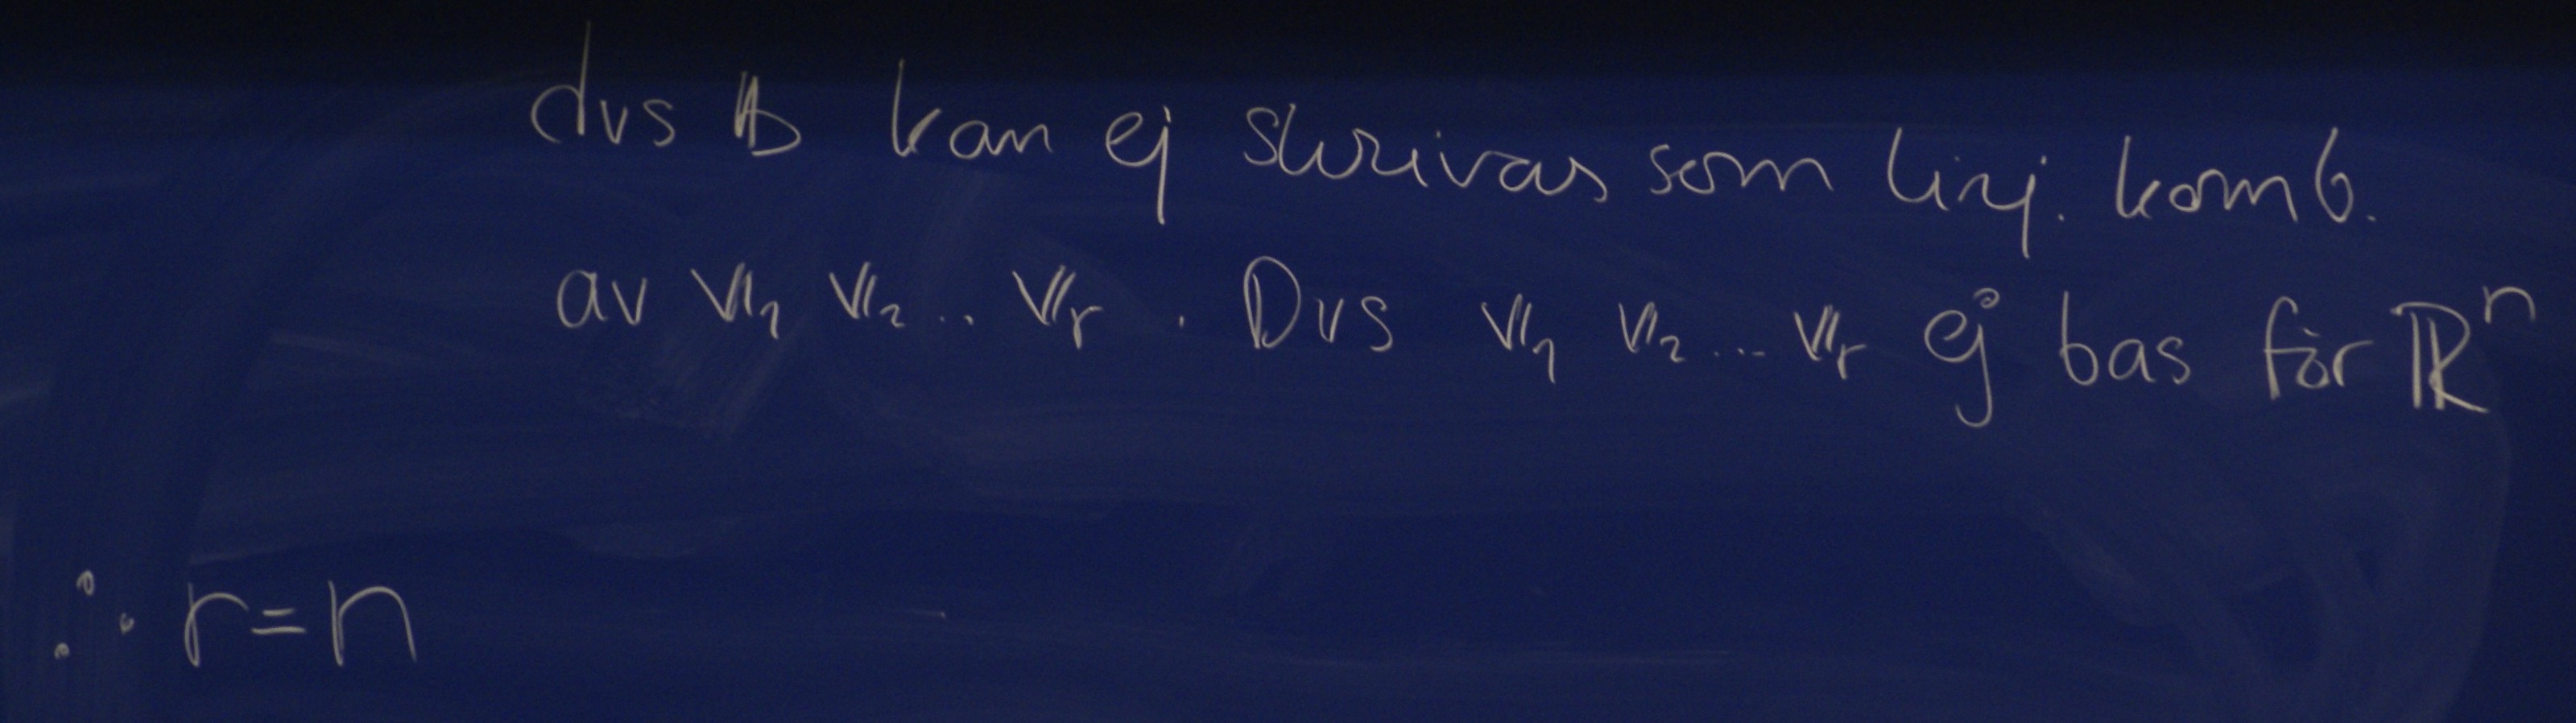 dvs 𝕓 kan ej skrivas som linj. komb.
av 𝕧₁ 𝕧₂ .. 𝕧ᵣ . Dvs 𝕧₁ 𝕧₂ ... 𝕧ᵣ ej bas för ℝⁿ
∴ r=n